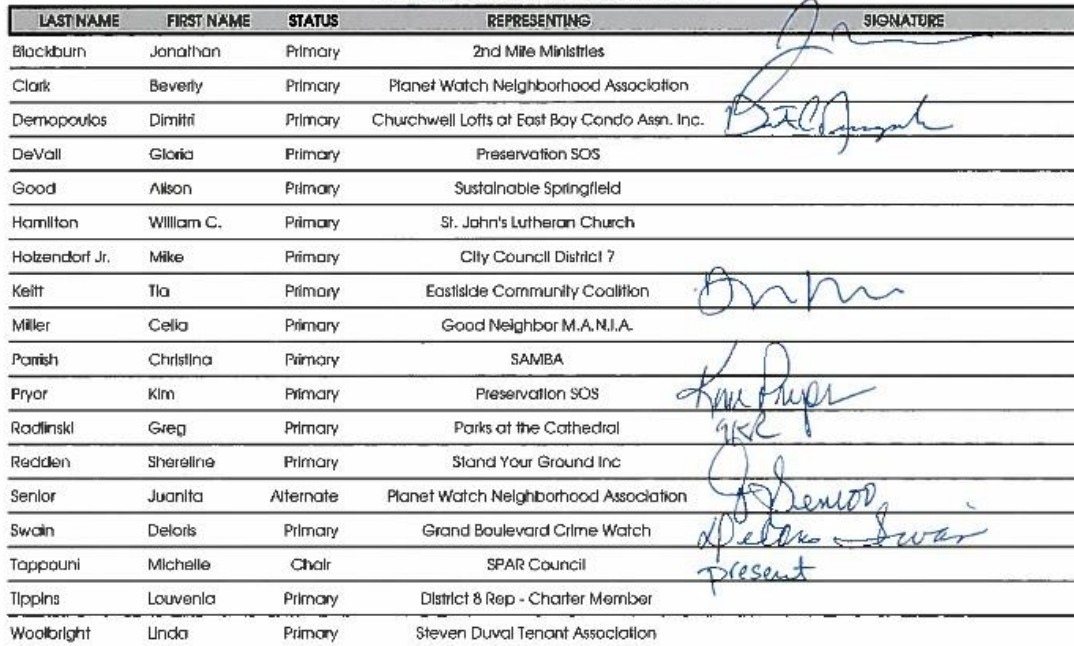 LAST NAME FIRST NAME STATUS REPRESENTING SIGNATURE
Blackburn Jonathan Primary 2nd Mile Ministries
Clark Beverly Primary Planet Watch Neighborhood Association
Demopoulos Dimitri Primary Churchwell Lofts at East Bay Condo Assn. Inc.
DeVall Gloria Primary Preservation SOS
Good Alison Primary Sustainable Springfield
Hamilton William C. Primary St. John's Lutheran Church
Holzendorf Jr. Mike Primary City Council District 7
Keitt Tia Primary Eastside Community Coalition
Miller Celia Primary Good Neighbor M.A.N.I.A.
Parrish Christina Primary SAMBA
Pryor Kim Primary Preservation SOS Kim Pryor
Radlinski Greg Primary Parks at the Cathedral
Redden Shereline Primary Stand Your Ground Inc
Senior Juanita Alternate Planet Watch Neighborhood Association J Senior
Swain Deloris Primary Grand Boulevard Crime Watch Deloris Swain
Tappouni Michelle Chair SPAR Council present
Tippins Louvenia Primary District 8 Rep - Charter Member
Woolbright Linda Primary Steven Duval Tenant Association